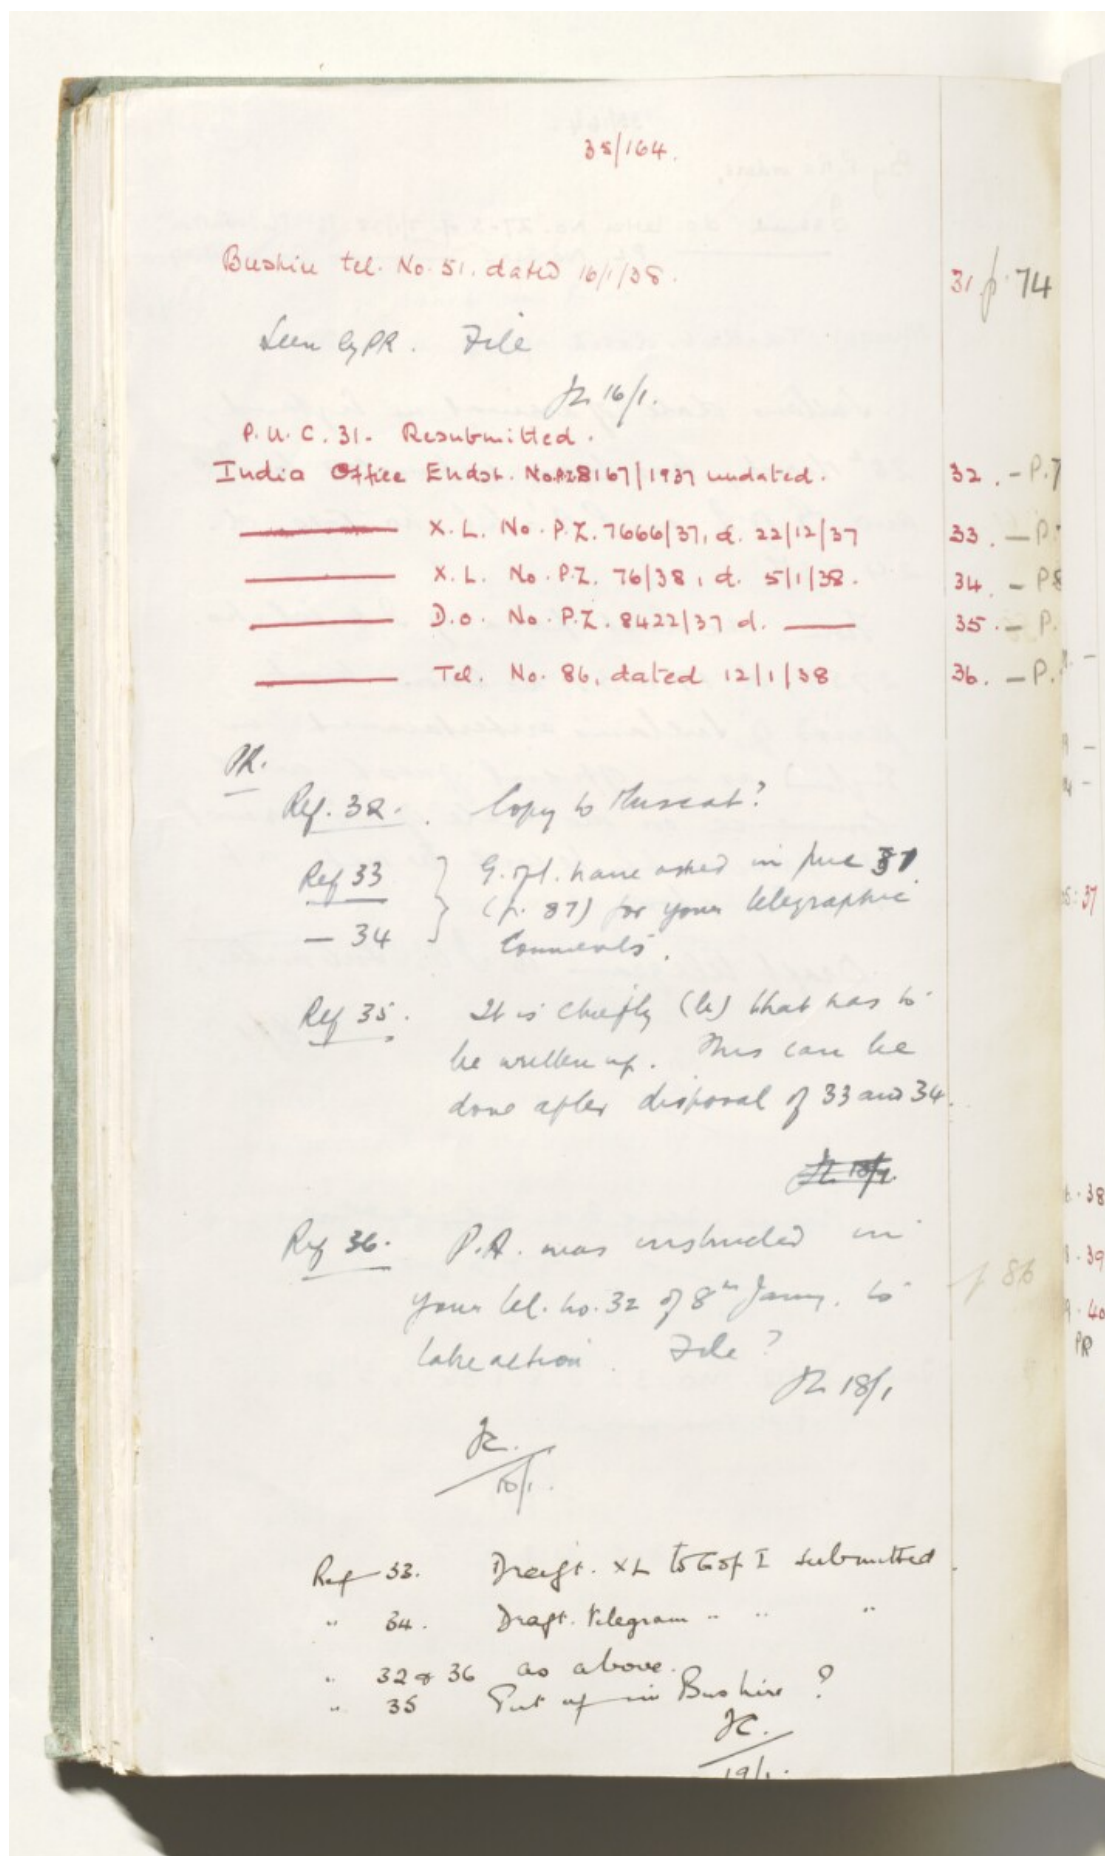 35/164.
Bushire tel. No. 51. dated 16/1/38. 31 p. 74
Seen by PR. File
16/1.
P.U.C. 31- Resubmitted.
India Office Endst. No.P.Z.8167/1937 undated. 32. - P.7
X.L. No. P.Z. 7666/37, d. 22/12/37 33. - P.
X.L. No. P.Z. 76/38, d. 5/1/38. 34. - P8
D.O. No. P.Z. 8422/37 d. 35. - P.
Tel. No. 86, dated 12/1/38 36. - P.
PR.
Ref. 32. Copy to Muscat?
Ref 33 G. of I. have asked in puc 37
(p. 87) for your telegraphic
- 34 Comments.
Ref 35. It is chiefly (b) that has to
be written up. This can be
done after disposal of 33 and 34.
Ref 36. P.A. was instructed in
your tel. no. 32 of 8th Jany. to p 86
take action. File?
18/1
Ref 33. Draft. XL to G of I submitted.
" 34. Draft. telegram " " "
" 32 & 36 as above.
" 35 Put up in Bushire?
19/1.
37
38
39
40
PR